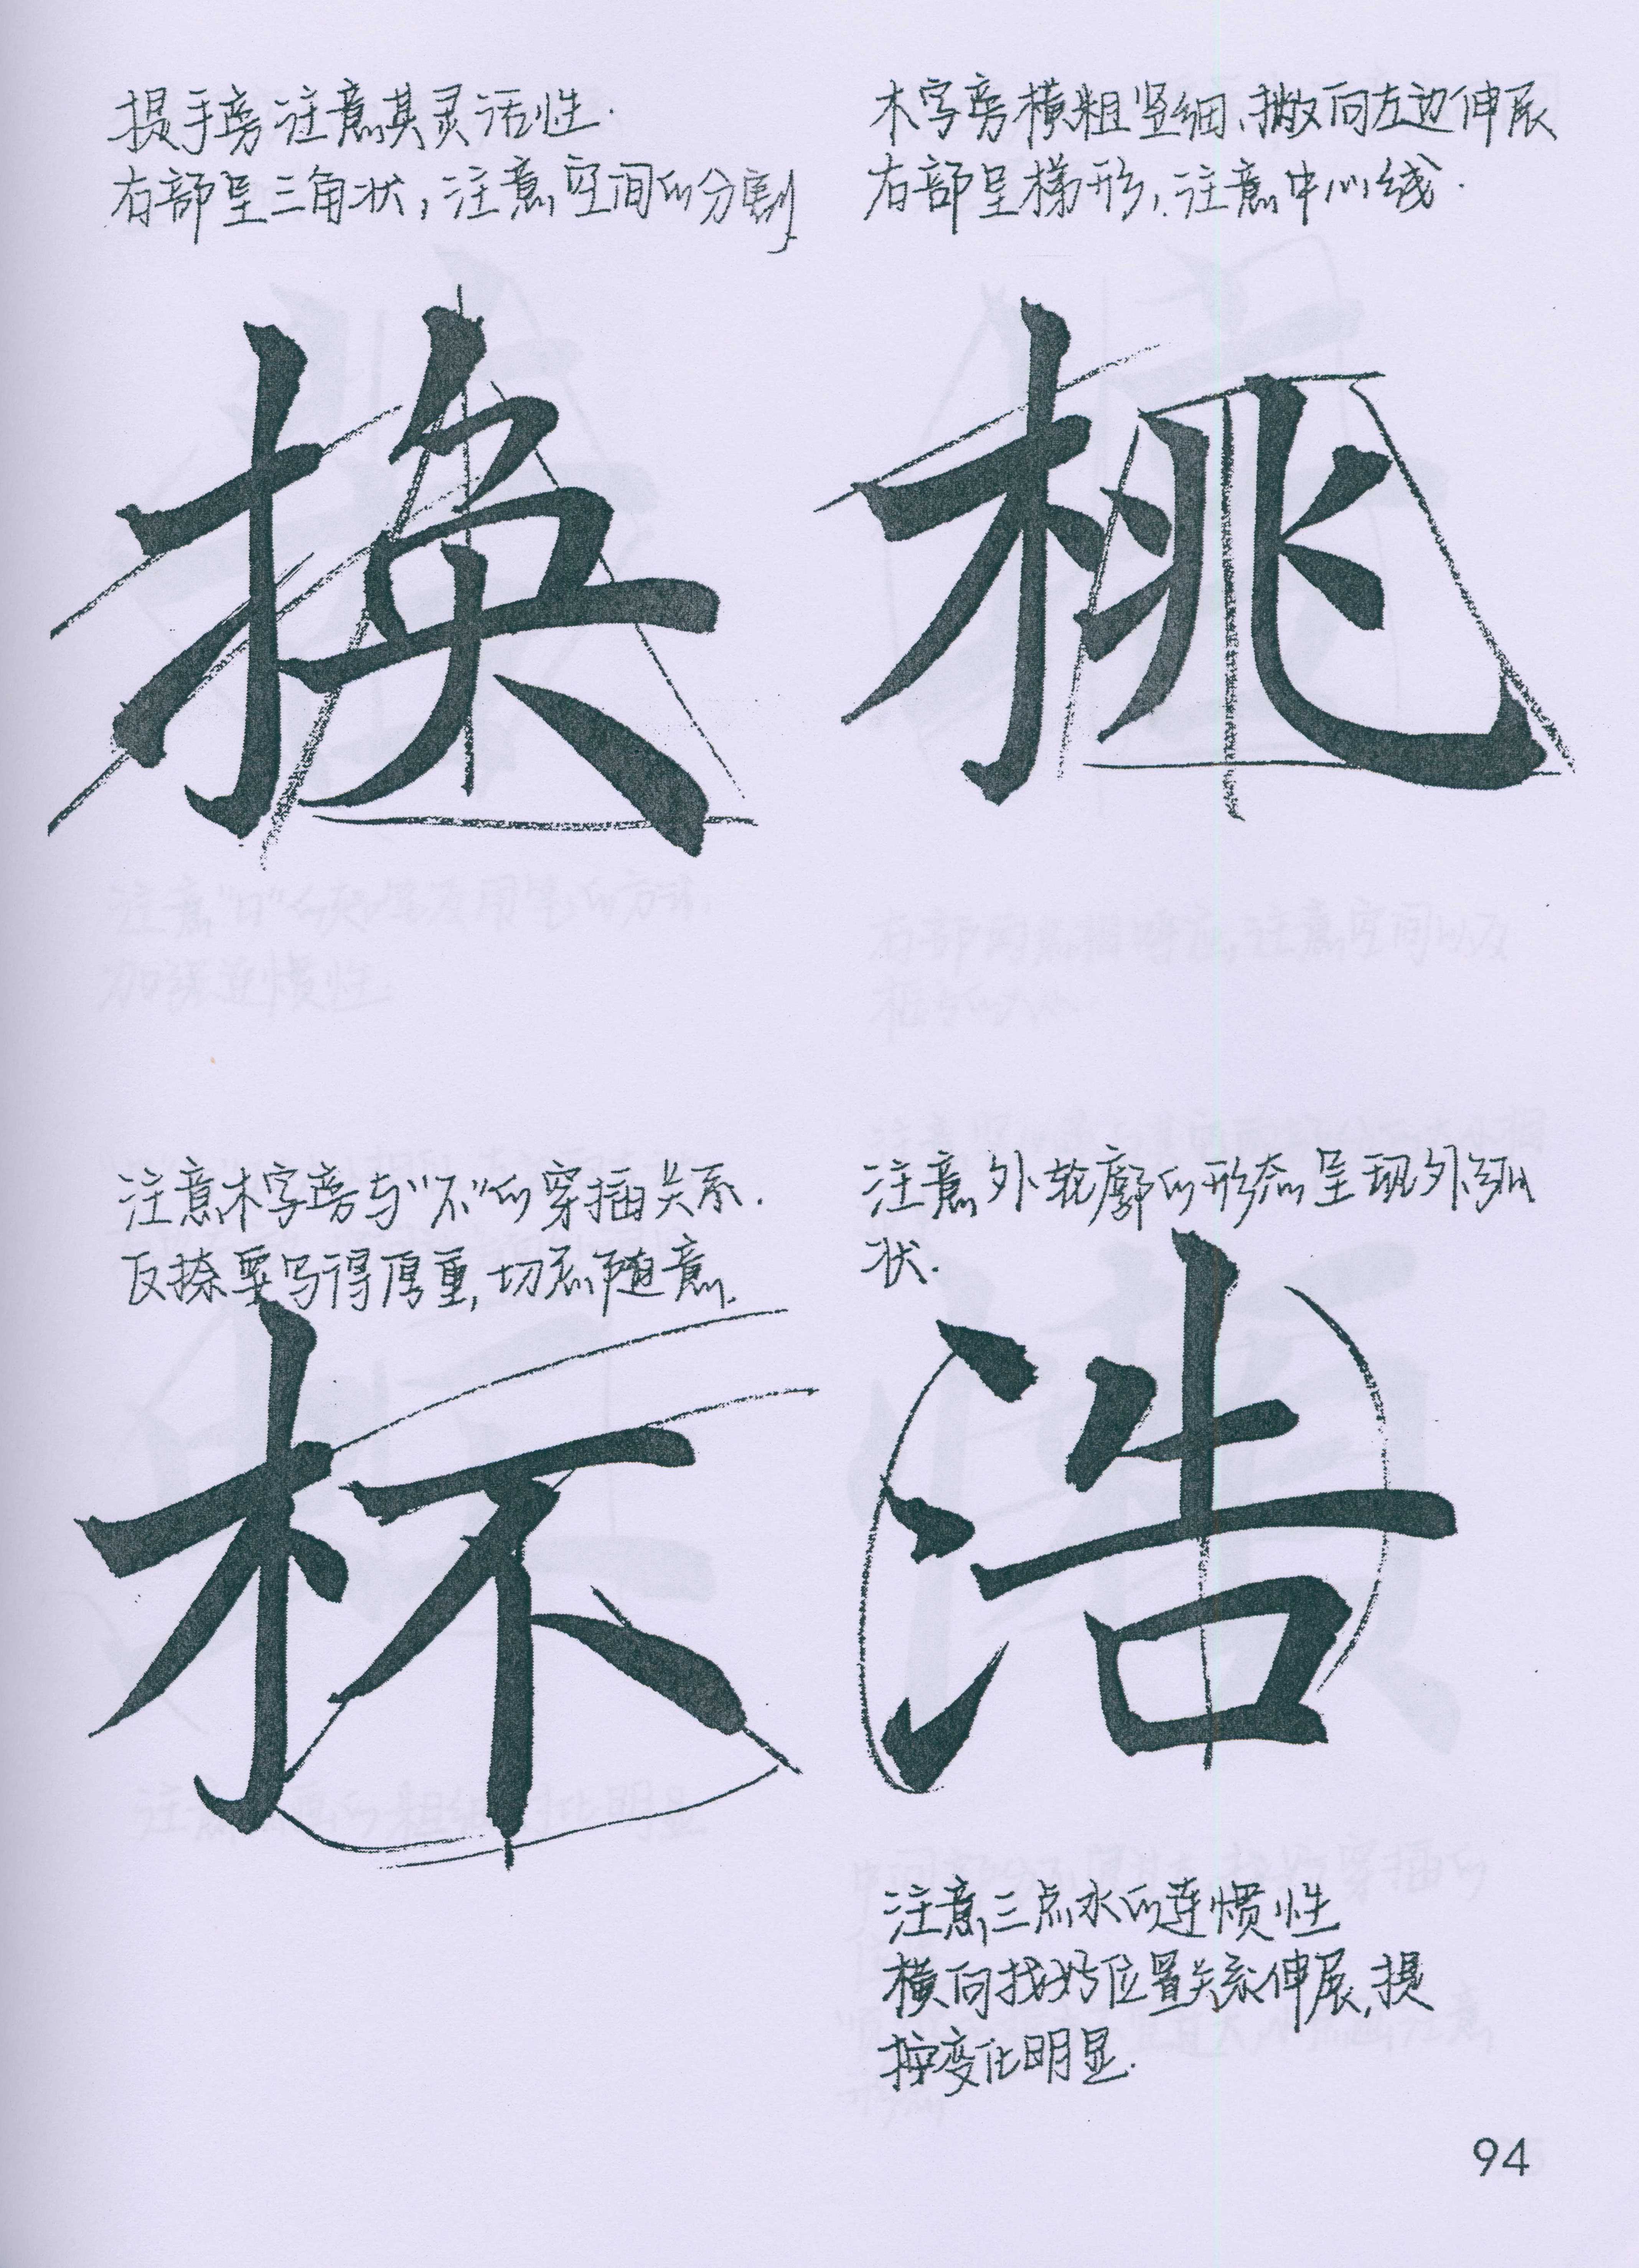 提手旁注意其灵活性.
右部呈三角状,注意空间的分割
换
木字旁横粗竖细、撇向左边伸展
右部呈梯形,注意中心线.
桃
注意木字旁与“不”的穿插关系.
反捺要写得厚重,切忌随意.
杯
注意外轮廓的形态呈现外弧
状.
浩
注意三点水的连惯性
横向找好位置关系伸展,提
按变化明显.
94